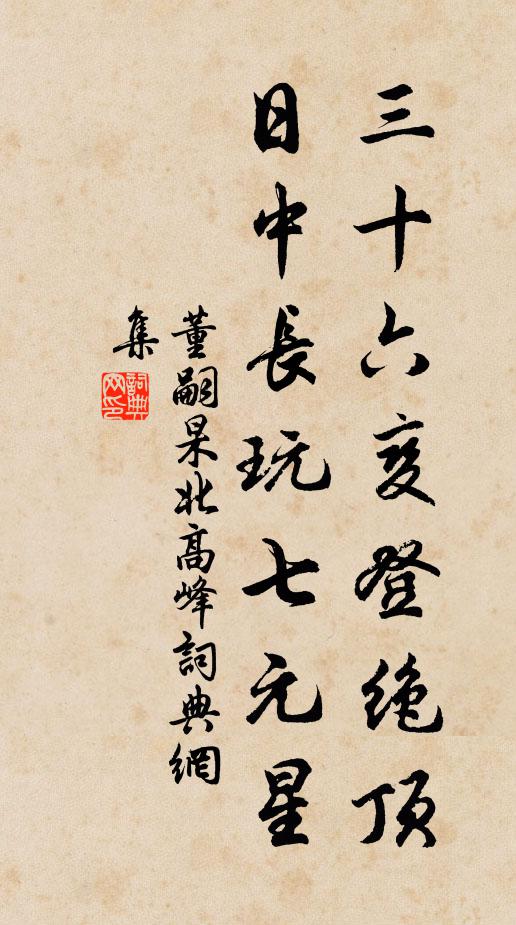 三十六变登绝顶
日中長玩七元星
董嗣杲北高峰詞典網
集
詞典
网印